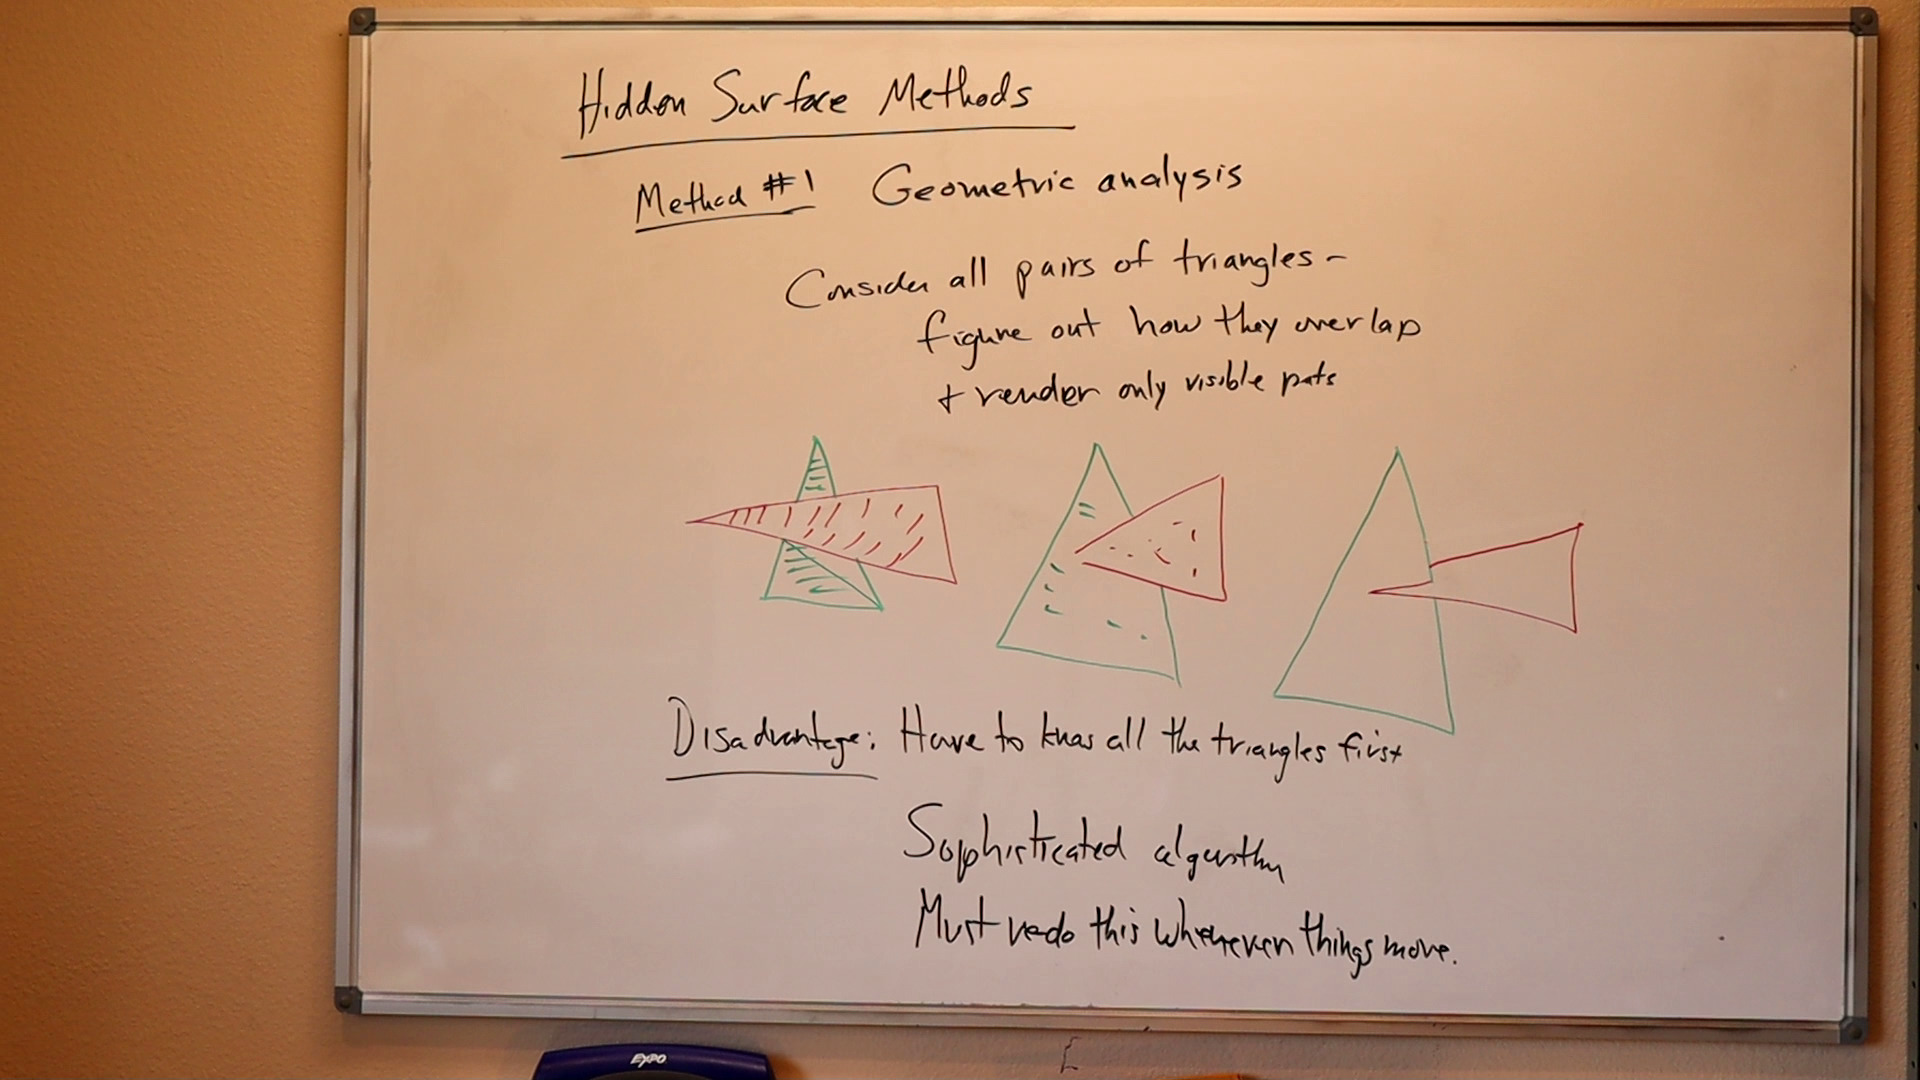 Hidden Surface Methods
Method #1 Geometric analysis
Consider all pairs of triangles -
figure out how they overlap
+ render only visible parts
Disadvantage: Have to know all the triangles first
Sophisticated algorithm
Must redo this whenever things move.
EXPO